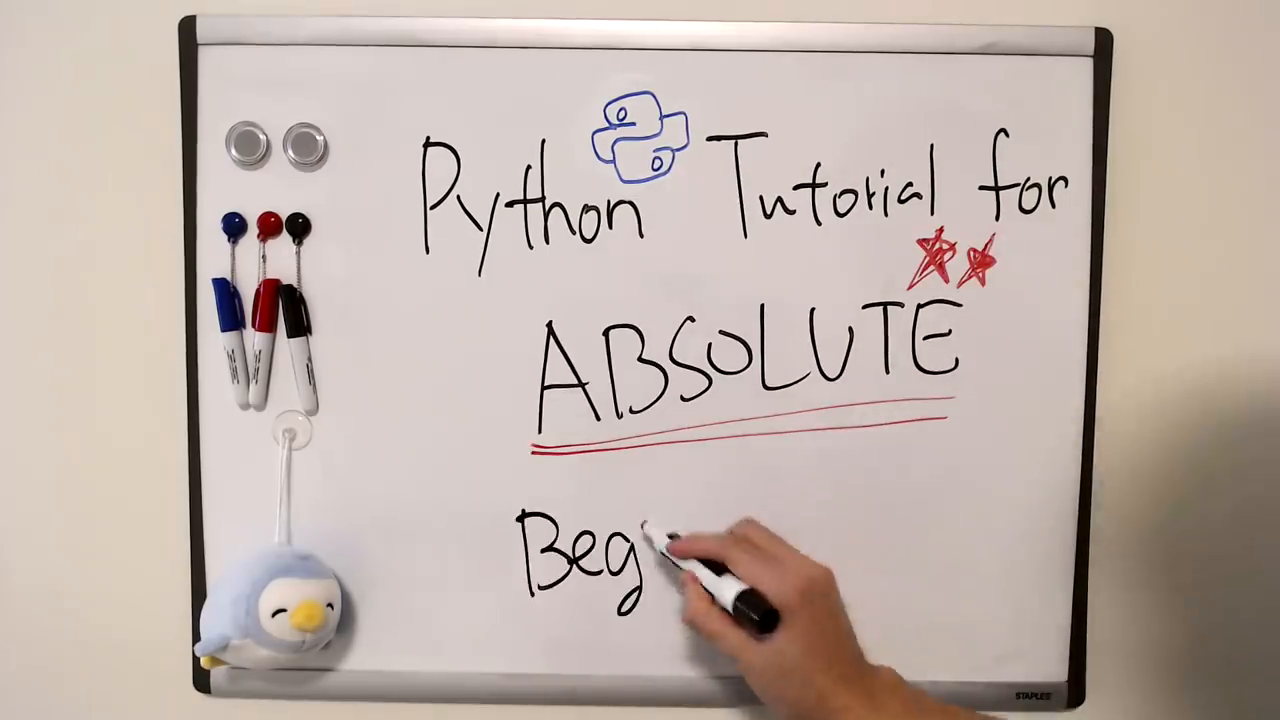 Python Tutorial for
ABSOLUTE
Beg
STAPLES